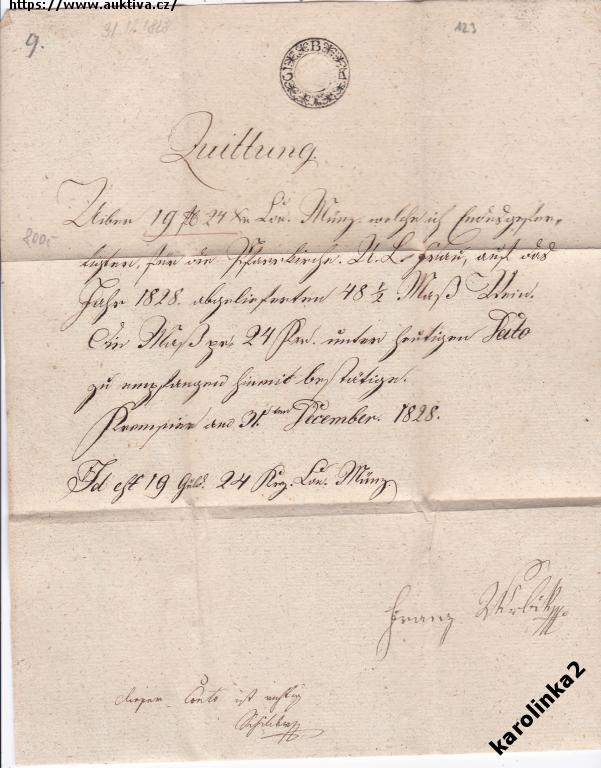 https://www.auktiva.cz/
31.12.1828
123
9.
Quittung
Uiber 19 f 24 Kr Con. Münz welche ich Endesgefer-
tigter, für die Pfarrkirche. U. L. Frau, auf das
200,-
Jahr 1828. abgelieferten 48 ½ Maß Wein.
Die Maß pr. 24 Kr. unter heutigen Dato
zu empfangen hiermit bestätige.
Kremsier am 31.ten December. 1828.
Id est 19 Guld. 24 Krz. Con. Münz.
Franz
Conto ist richtig
karolinka2